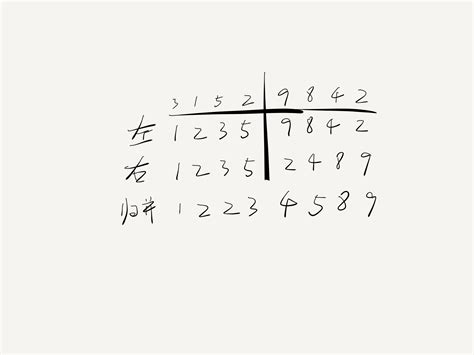 3 1 5 2 9 8 4 2
左 1 2 3 5 9 8 4 2
右 1 2 3 5 2 4 8 9
归并 1 2 2 3 4 5 8 9